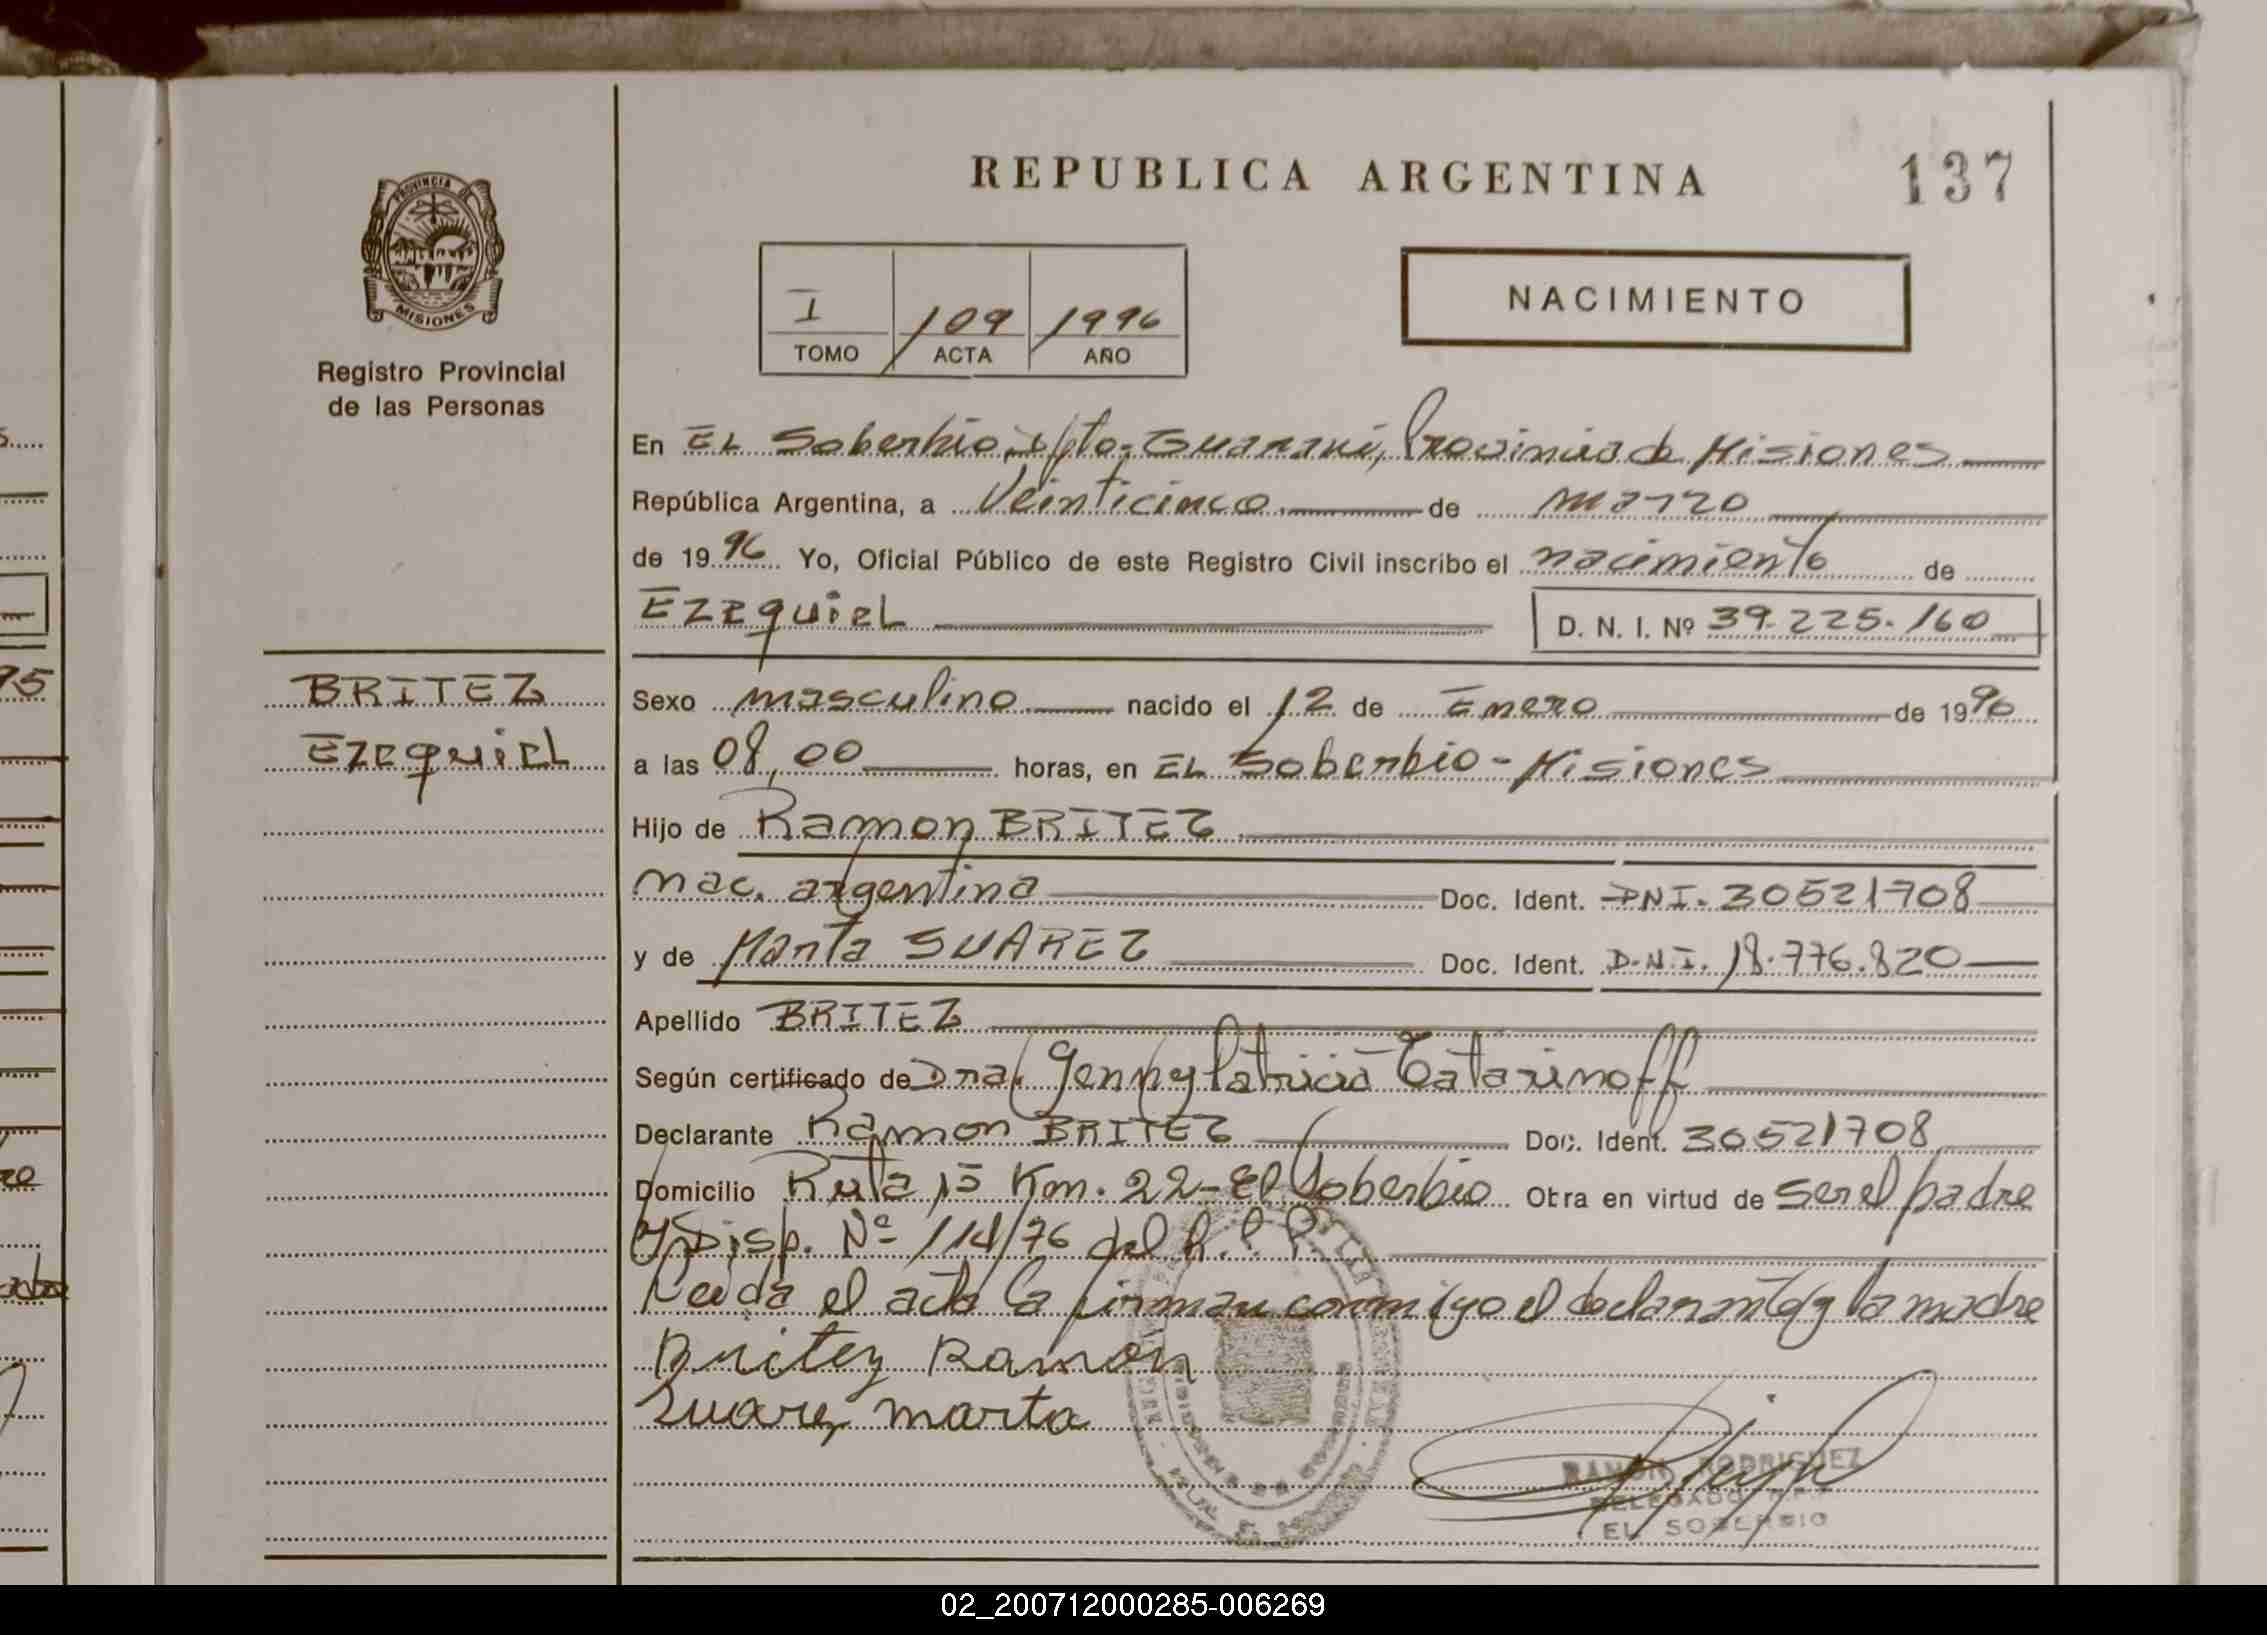 REPUBLICA ARGENTINA
137
PROVINCIA DE
MISIONES
Registro Provincial
de las Personas
I
109
1996
TOMO
ACTA
AÑO
NACIMIENTO
En EL Soberbio, Dpto. Guaraní, Provincia de Misiones
República Argentina, a Veinticinco de marzo
de 1996 Yo, Oficial Público de este Registro Civil inscribo el nacimiento de
EZEquiEL D. N. I. Nº 39.225.160
BRITEZ
EZEquiEL
Sexo masculino nacido el 12 de Enero de 1996
a las 08,00 horas, en EL Soberbio - Misiones
Hijo de Ramon BRITEZ
nac. argentina Doc. Ident. DNI. 30521708
y de Marta SUAREZ Doc. Ident. D.N.I. 18.776.820
Apellido BRITEZ
Según certificado de Dra. Jenny Patricia Tatarinoff
Declarante Ramon BRITEZ Doc. Ident. 30521708
Domicilio Ruta 15 Km. 22 - El Soberbio Obra en virtud de ser el padre
y Disp. Nº 114/76 del R.P.P.
Leida el acta la firman conmigo el declarante y la madre
Britez Ramon
Suarez marta
RAMON RODRIGUEZ
DELEGADO R.P.P.
EL SOBERBIO
02_200712000285-006269